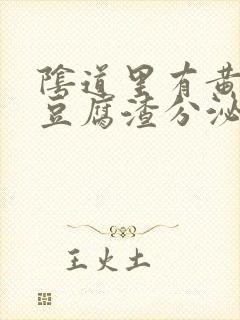 陰道里有黄
豆腐渣分泌
王火土